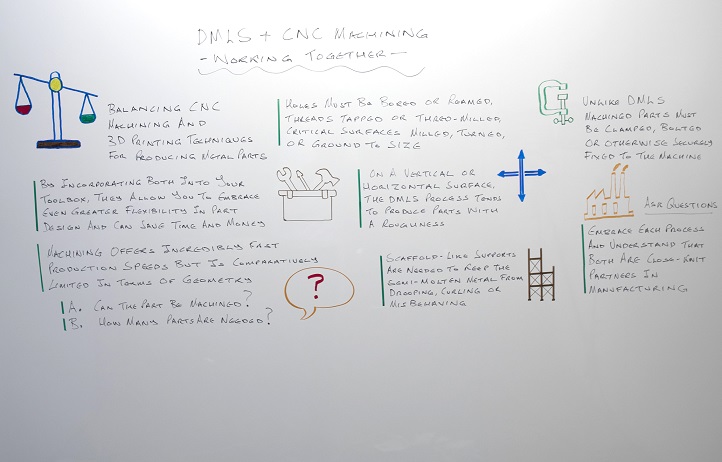 DMLS + CNC MACHINING
- WORKING TOGETHER -
BALANCING CNC
MACHINING AND
3D PRINTING TECHNIQUES
FOR PRODUCING METAL PARTS
BY INCORPORATING BOTH INTO YOUR
TOOLBOX, THEY ALLOW YOU TO EMBRACE
EVEN GREATER FLEXIBILITY IN PART
DESIGN AND CAN SAVE TIME AND MONEY
MACHINING OFFERS INCREDIBLY FAST
PRODUCTION SPEEDS BUT IS COMPARATIVELY
LIMITED IN TERMS OF GEOMETRY
A. CAN THE PART BE MACHINED?
B. HOW MANY PARTS ARE NEEDED?
?
HOLES MUST BE BORED OR REAMED,
THREADS TAPPED OR THREAD-MILLED,
CRITICAL SURFACES MILLED, TURNED,
OR GROUND TO SIZE
ON A VERTICAL OR
HORIZONTAL SURFACE,
THE DMLS PROCESS TENDS
TO PRODUCE PARTS WITH
A ROUGHNESS
SCAFFOLD-LIKE SUPPORTS
ARE NEEDED TO KEEP THE
SEMI-MOLTEN METAL FROM
DROOPING, CURLING OR
MISBEHAVING
UNLIKE DMLS
MACHINED PARTS MUST
BE CLAMPED, BOLTED
OR OTHERWISE SECURELY
FIXED TO THE MACHINE
ASK QUESTIONS
EMBRACE EACH PROCESS
AND UNDERSTAND THAT
BOTH ARE CLOSE-KNIT
PARTNERS IN
MANUFACTURING